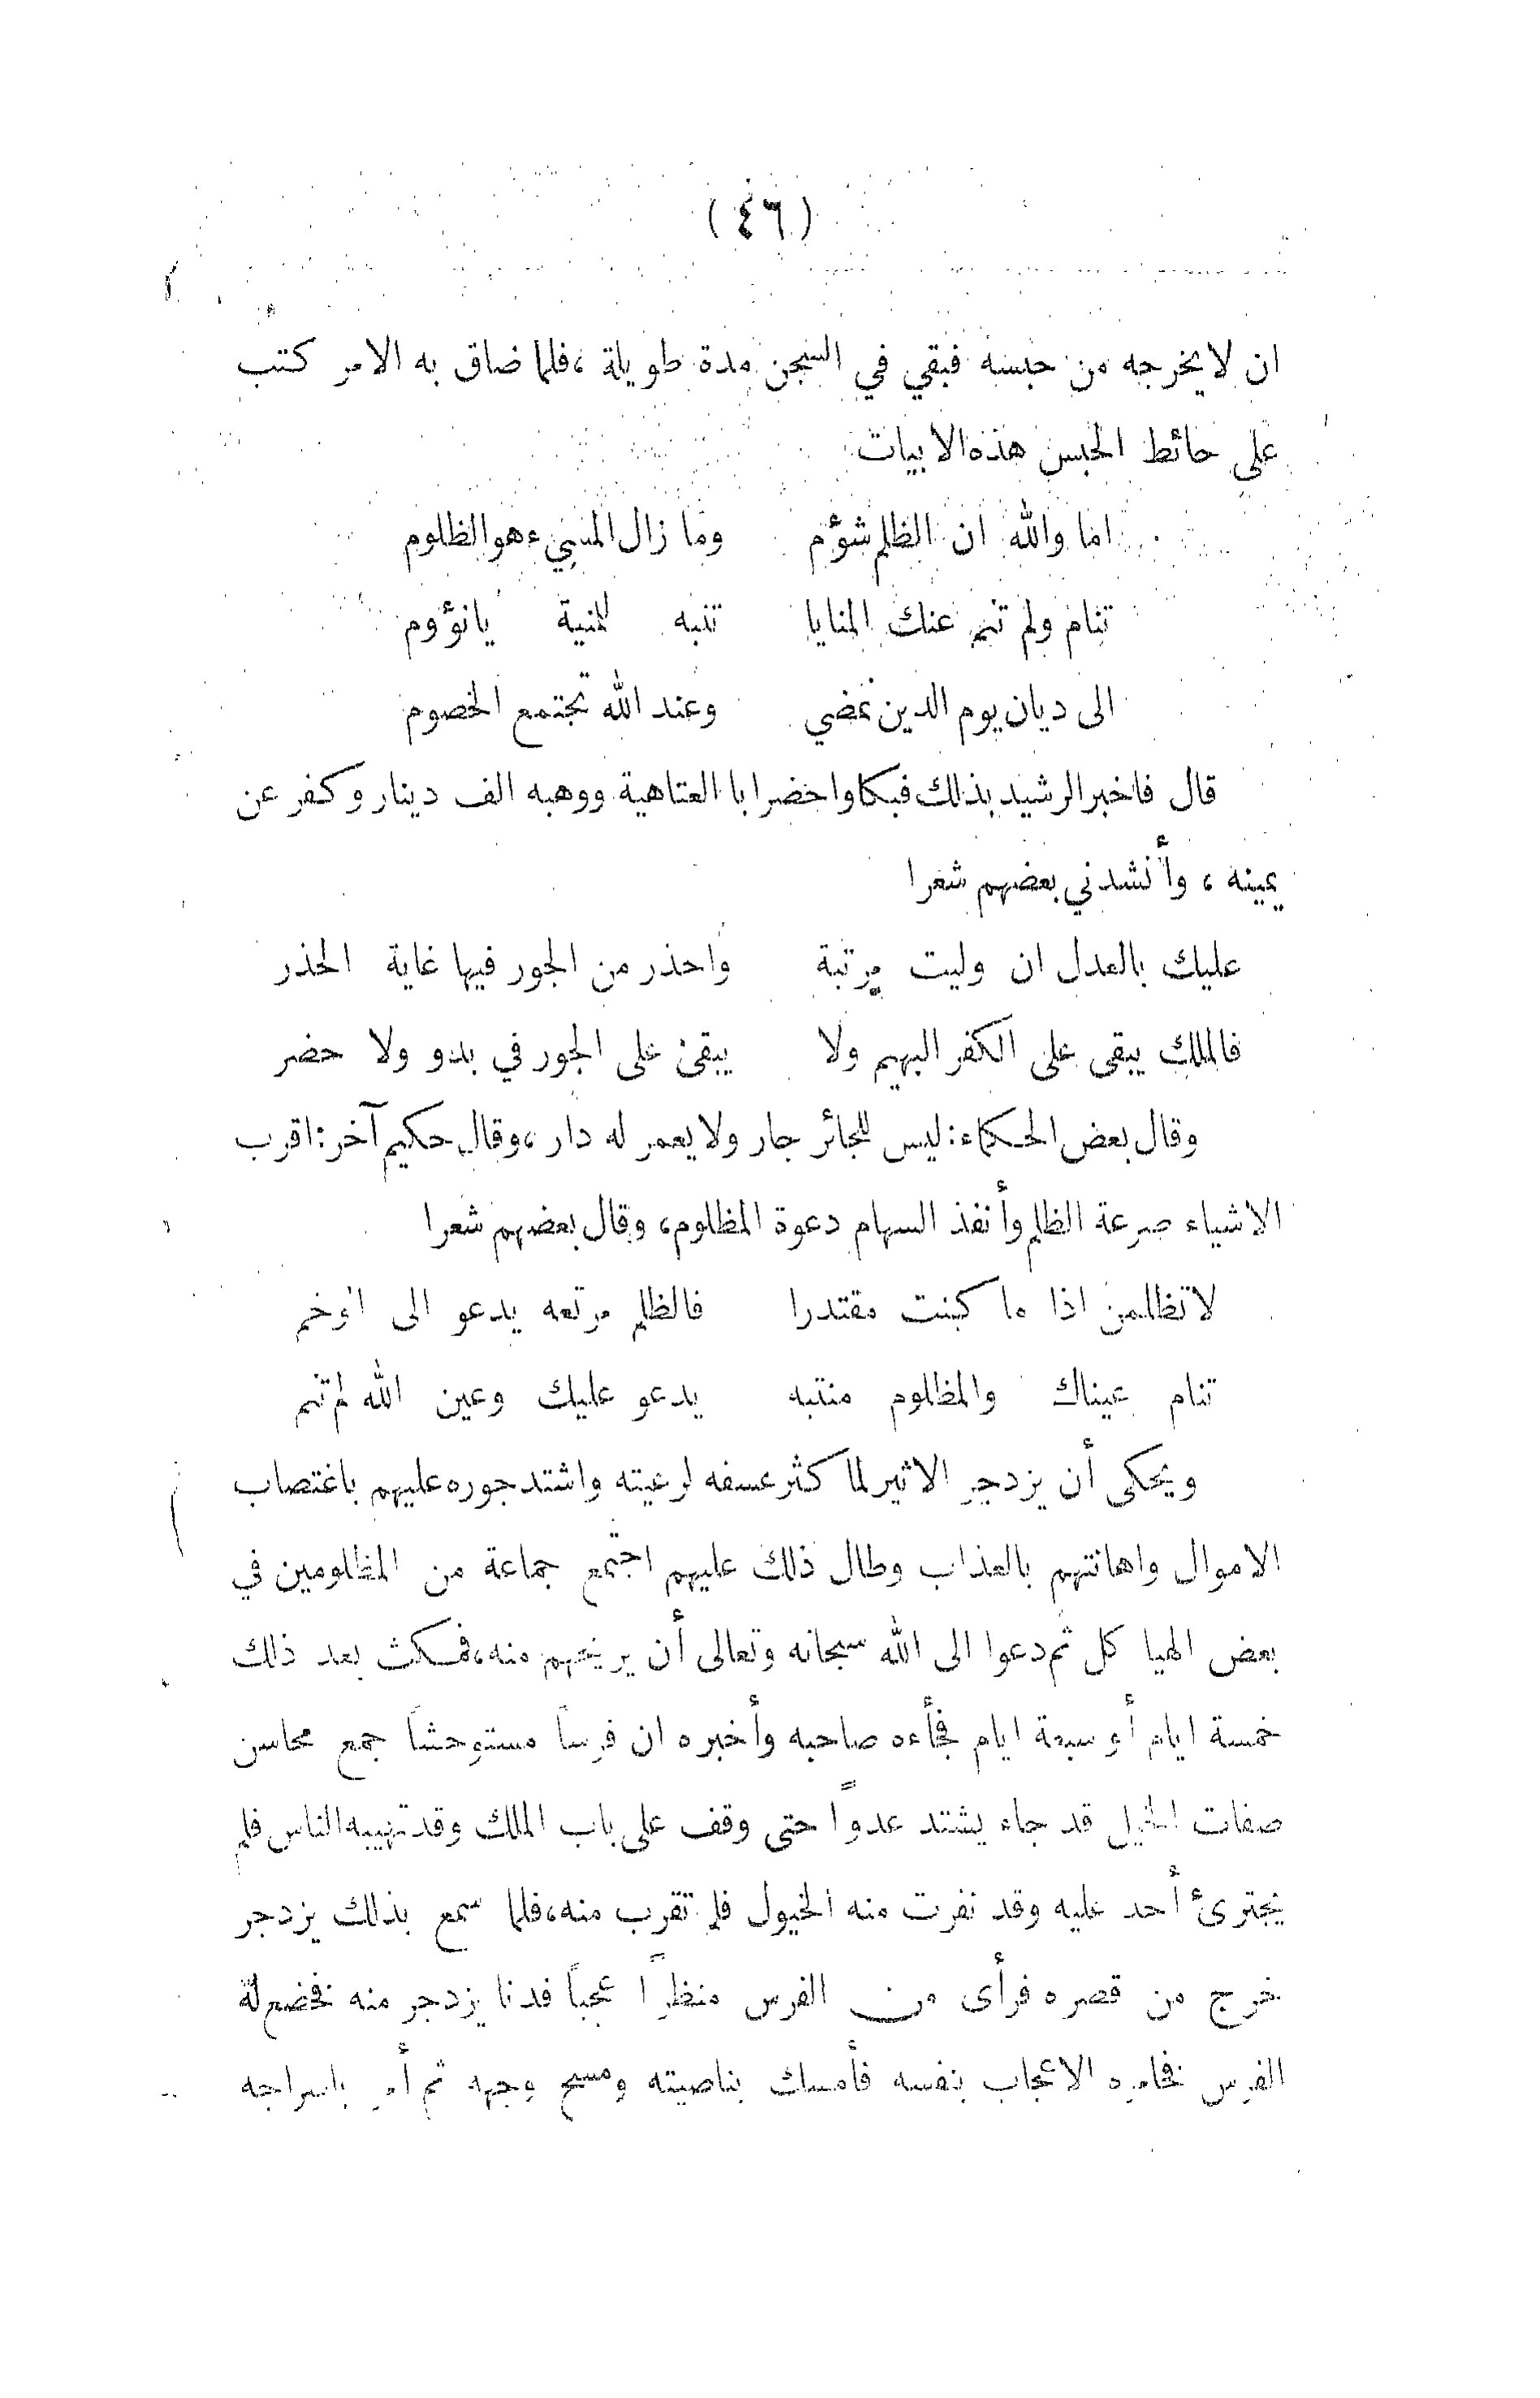 (٤٦)
ان لا يخرجه من حبسه فبقي في السجن مدة طويلة ، فلما ضاق به الامر كتب
على حائط الحبس هذه الابيات
اما والله ان الظلم شؤم وما زال المسيء هو الظلوم
تنام ولم تنم عنك المنايا تنبه للمنية يا نؤوم
الى ديان يوم الدين نمضي وعند الله تجتمع الخصوم
قال فاخبر الرشيد بذلك فبكا واحضر ابا العتاهية ووهبه الف دينار وكفر عن
يمينه ، وأنشدني بعضهم شعرا
عليك بالعدل ان وليت مرتبة واحذر من الجور فيها غاية الحذر
فالملك يبقى على الكفر البهيم ولا يبقى على الجور في بدو ولا حضر
وقال بعض الحكاء : ليس للجائر جار ولا يعمر له دار ، وقال حكيم آخر : اقرب
الاشياء صرعة الظلم وأنفذ السهام دعوة المظلوم ، وقال بعضهم شعرا
لا تظلمن اذا ما كنت مقتدرا فالظلم مرتعه يدعو الى الوخم
تنام عيناك والمظلوم منتبه يدعو عليك وعين الله لم تنم
ويحكى أن يزدجر الاثير لما كثر عسفه لرعيته واشتد جوره عليهم باغتصاب
الاموال واهانتهم بالعذاب وطال ذلك عليهم اجتمع جماعة من المظلومين في
بعض الهيا كل ثم دعوا الى الله سبحانه وتعالى أن يريحهم منه ، فمكث بعد ذلك
خمسة ايام أو سبعة ايام فجأءه صاحبه وأخبره ان فرساً مستوحشاً جمع محاسن
صفات الخيل قد جاء يشتد عدواً حتى وقف على باب الملك وقد تهيبه الناس فلم
يجترئ أحد عليه وقد نفرت منه الخيول فلم تقرب منه ، فلما سمع بذلك يزدجر
خرج من قصره فرأى من الفرس منظراً عجباً فدنا يزدجر منه فخضع له
الفرس فخامره الاعجاب بنفسه فأمسك بناصيته ومسح وجهه ثم أمر باسراجه